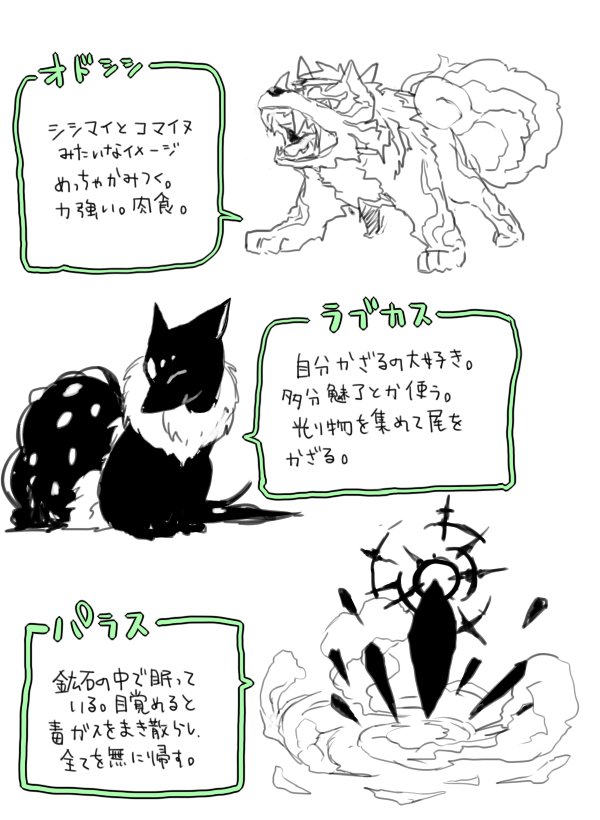 オドシシ
シシマイとコマイヌ
みたいなイメージ
めっちゃかみつく。
力強い。肉食。
ラブカス
自分かざるの大好き。
多分魅了とか使う。
光り物を集めて尾を
かざる。
パラス
鉱石の中で眠って
いる。目覚めると
毒ガスをまき散らし、
全てを無に帰す。